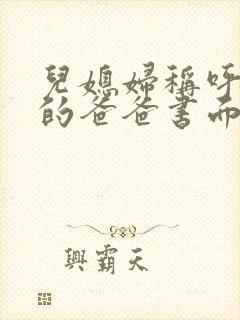 兒媳婦稱呼
的爸爸書面
興霸天